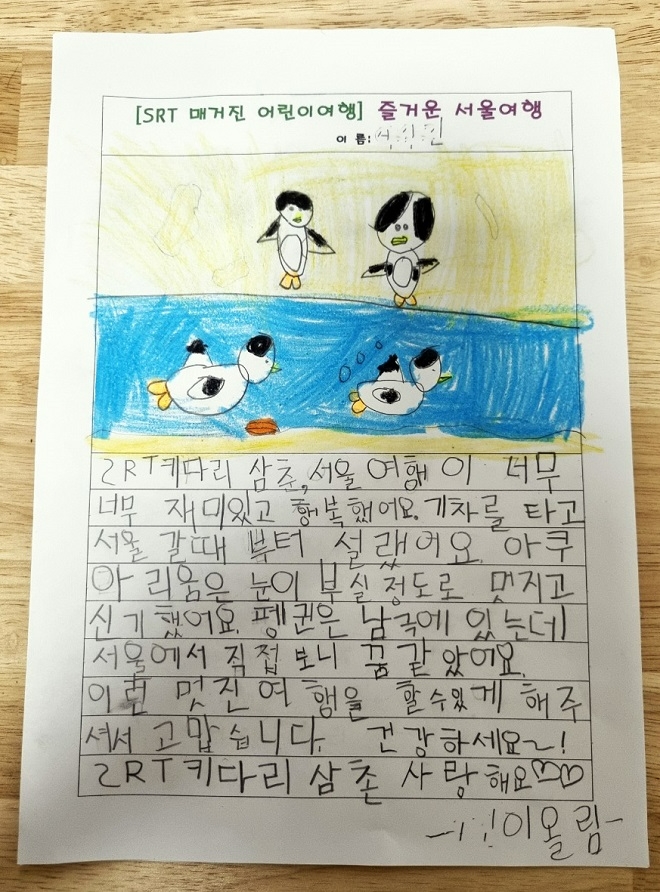 [SRT 매거진 어린이여행] 즐거운 서울여행
이 름:
SRT키다리 삼촌, 서울 여행이 너무
너무 재미있고 행복했어요. 기차를 타고
서울 갈때 부터 설랬어요. 아쿠
아리움은 눈이 부실 정도로 멋지고
신기했어요. 펭귄은 남극에 있는데
서울에서 직접 보니 꿈같았어요.
이럼 멋진 여행을 할수있게 해주
셔서 고맙습니다. 건강하세요~!
SRT키다리 삼촌 사랑해요♡♡
이올림-